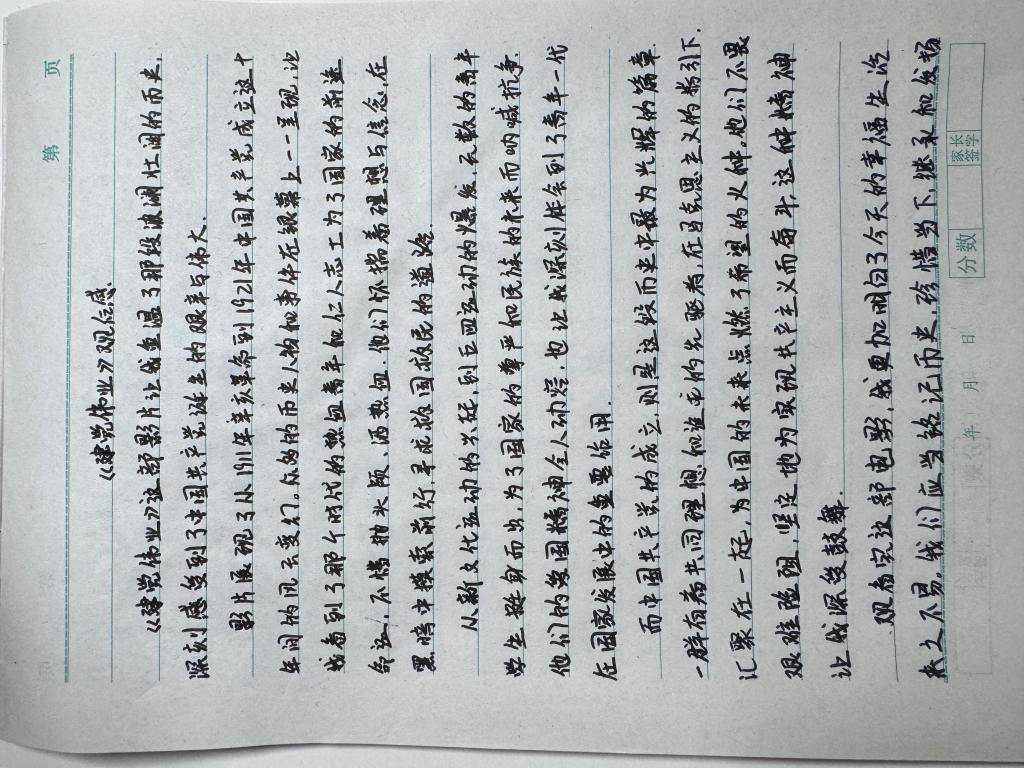 第 页
《建党伟业》观后感
《建党伟业》这部影片让我重温了那段波澜壮阔的历史,
深刻感受到了中国共产党诞生的艰辛与伟大.
影片展现了从1911年辛亥革命到1921年中国共产党成立这十
年间的风云变幻。众多的历史人物和事件在银幕上一一呈现,让
我看到了那个时代的热血青年和仁人志士为了国家的前途
命运,不惜抛头颅、洒热血,他们怀揣着理想与信念,在
黑暗中摸索前行,寻求救国救民的道路.
从新文化运动的兴起,到五四运动的爆发,无数的青年
学生挺身而出,为了国家的尊严和民族的未来而呐喊抗争.
他们的爱国精神令人动容,也让我深刻体会到了青年一代
在国家发展中的重要作用.
而中国共产党的成立,则是这段历史中最为光辉的篇章
一群有着共同理想和追求的先驱者,在马克思主义的指引下.
汇聚在一起,为中国的未来点燃了希望的火种.他们不畏
艰难险阻,坚定地为实现共产主义而奋斗,这种精神
让我深受鼓舞.
观看完这部电影,我更加明白了今天的幸福生活
来之不易,我们应当铭记历史,珍惜当下,继承和发扬
分数
家长
签字
年 月 日